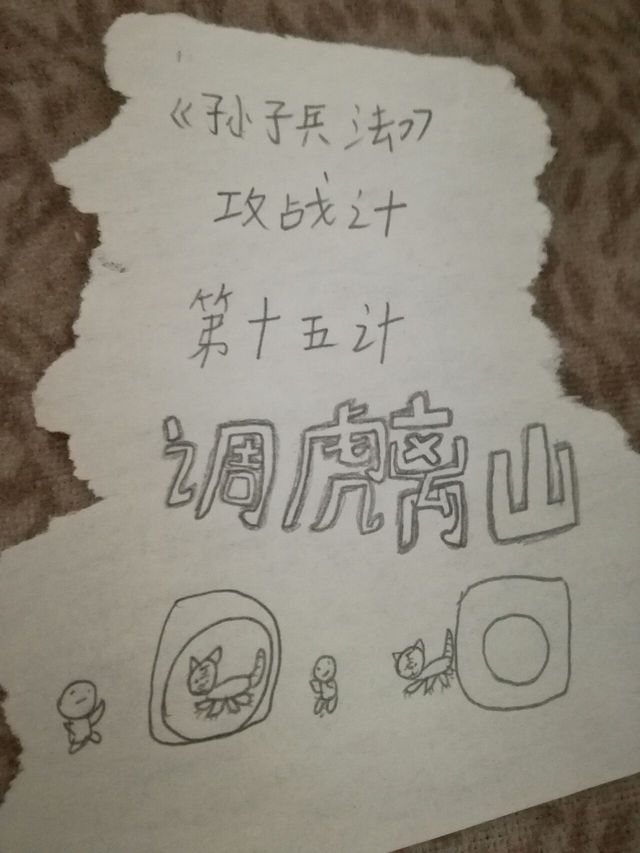 《孙子兵法》
攻战计
第十五计
调虎离山